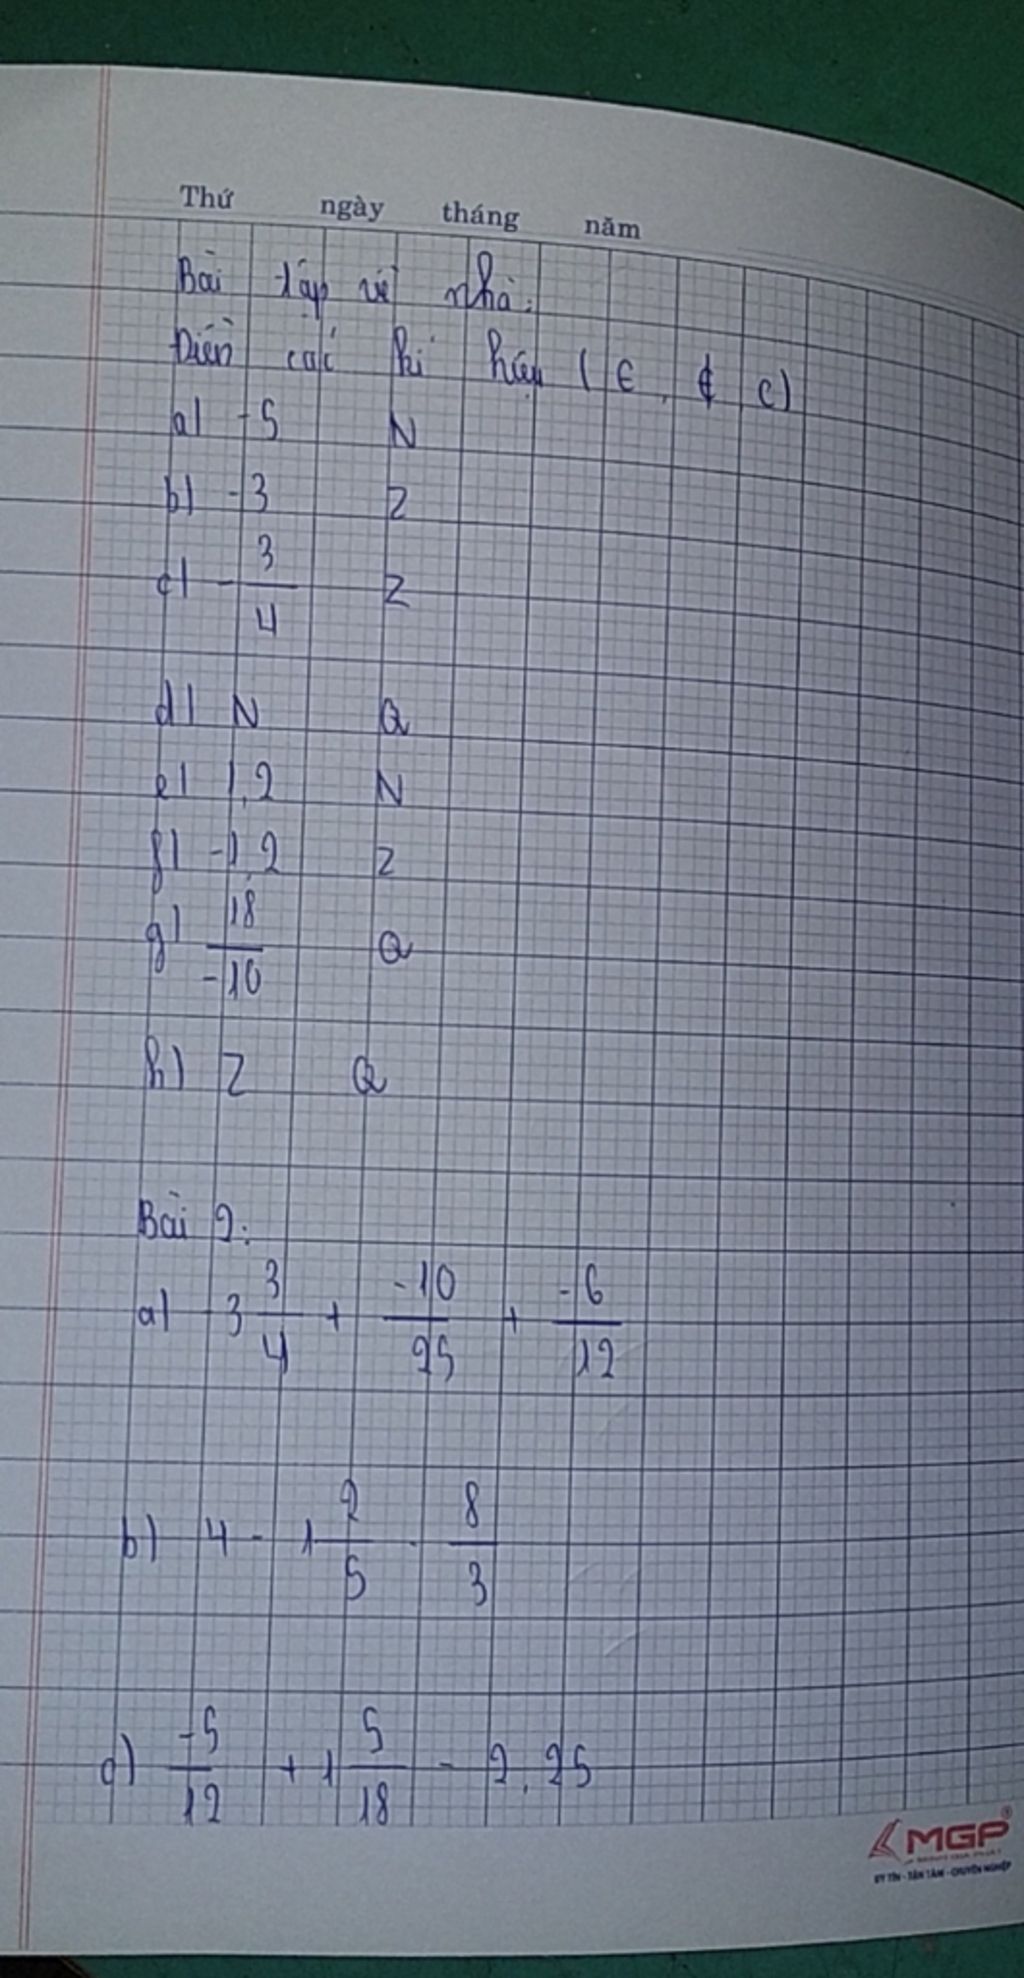 Thứ ngày tháng năm
Bài tập về nhà:
Điền các kí hiệu ( ∈, ∉, ⊂)
a) -5 N
b) -3 Z
c) -3/4 Z
d) N Q
e) 1,2 N
f) -1,2 Z
g) 18/-10 Q
h) Z Q
Bài 2:
a) 3 3/4 + -10/25 + -6/12
b) 4 - 1 2/5 - 8/3
c) -5/12 + 1 5/18 - 2,25
MGP
UY TÍN - TẬN TÂM - CHUYÊN NGHIỆP